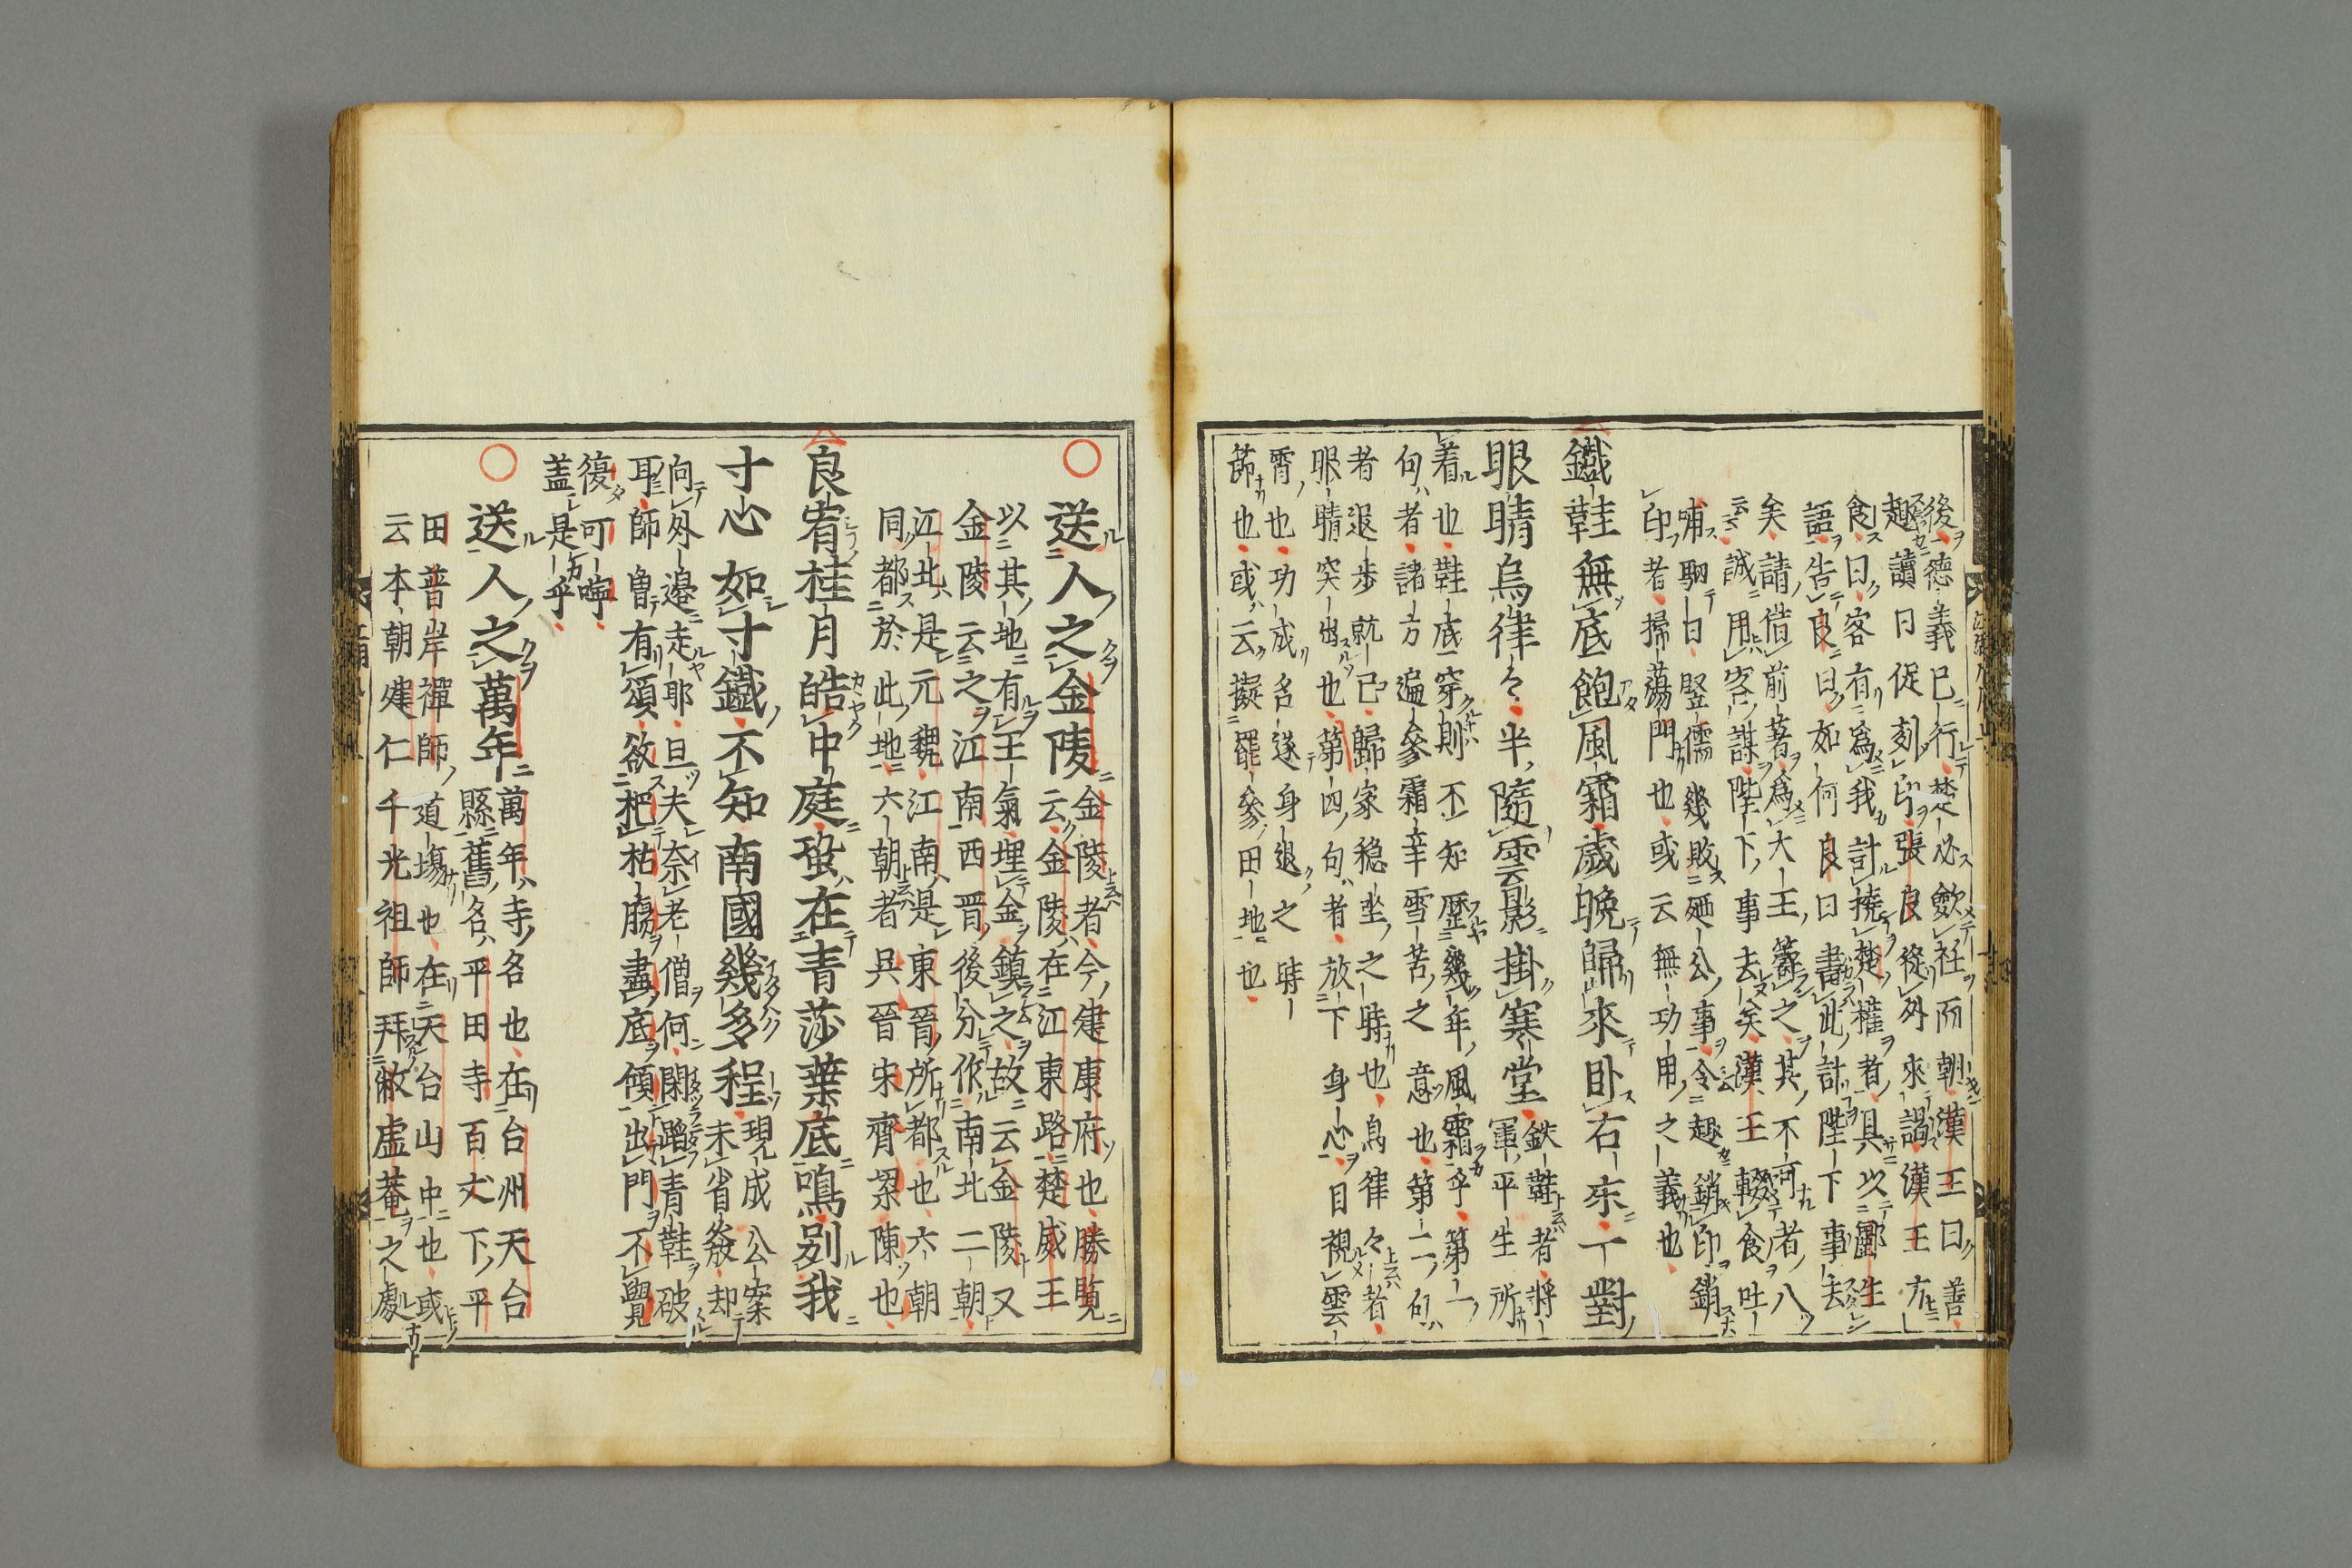 後德義已行楚必歛衽而朝漢王曰善
趣讀曰促刻印張良從外來謁漢王方
食曰客有爲我計撓楚權者具以酈生
語告良曰如何良曰畫此計陛下事去
矣請借前著爲大王籌之其不可者八
云云誠用客謀陛下事去矣漢王輟食吐
哺駉曰竪儒幾敗廼公事令趣銷印銷
印者掃蕩門也或云無功用之義也
鐵鞋無底飽風霜歲晩歸來卧石床一對
眼睛烏律々半隨雲影掛寒堂
鉄鞋者將軍平生所
着也鞋底穿則不知歴幾年風霜乎第一
句者諸方遍參霜辛雪苦之意也第二句
者退歩就己歸家穏坐之時也烏律々者
眼睛突出也第四句者放下身心目視雲
霄也功成名遂身退之時
節也或云擬罷參田地也
○送人之金陵
金陵者今建康府也勝覧
云金陵在江東路楚威王
以其地有王氣埋金鎮之故云金陵又
金陵云之江南西晋後分作南北二朝
江北是元魏江南是東晋所都也六朝
同都於此地六朝者呉晉宋齊梁陳也
良宵桂月皓中庭蛩在青莎葉底鳴別我
寸心如寸鐵不知南國幾多程
現成公案
未省發却
向外邊走耶旦夫奈老僧何閑蹈青鞋破
耳師曽有頌欲把枯腸盡底傾出門不覺
復可嚀
盖是乎
○送人之萬年
萬年寺名也在台州天台
縣舊名平田寺百丈下平
田普岸禪師道場也在天台山中也或
云本朝建仁千光祖師拜敝虚菴之處